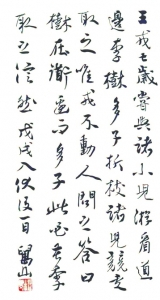 王戎七歲嘗與諸小兒游看道
邊李樹多子折枝諸兒競走
取之唯戎不動人問之答曰
樹在道邊而多子此必苦李
取之信然 戊戌入伏後一日